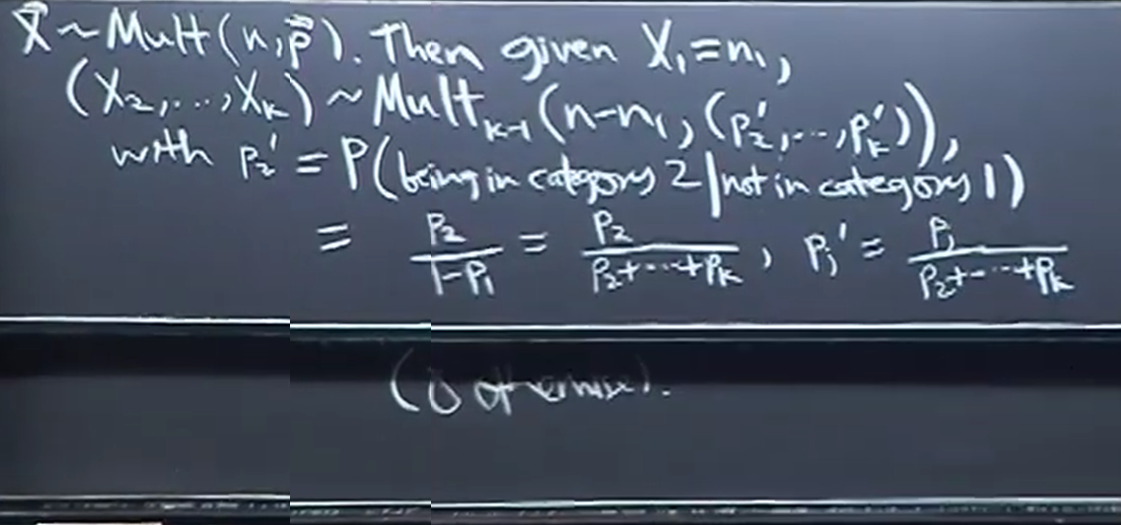 X⃗ ~ Mult(n, p⃗). Then given X₁=n₁,
(X₂,...,Xₖ) ~ Multₖ₋₁(n-n₁, (p₂',...,pₖ')),
with p₂' = P(being in category 2 | not in category 1)
= p₂/(1-p₁) = p₂/(p₂+...+pₖ), pⱼ' = pⱼ/(p₂+...+pₖ)
(0 otherwise).